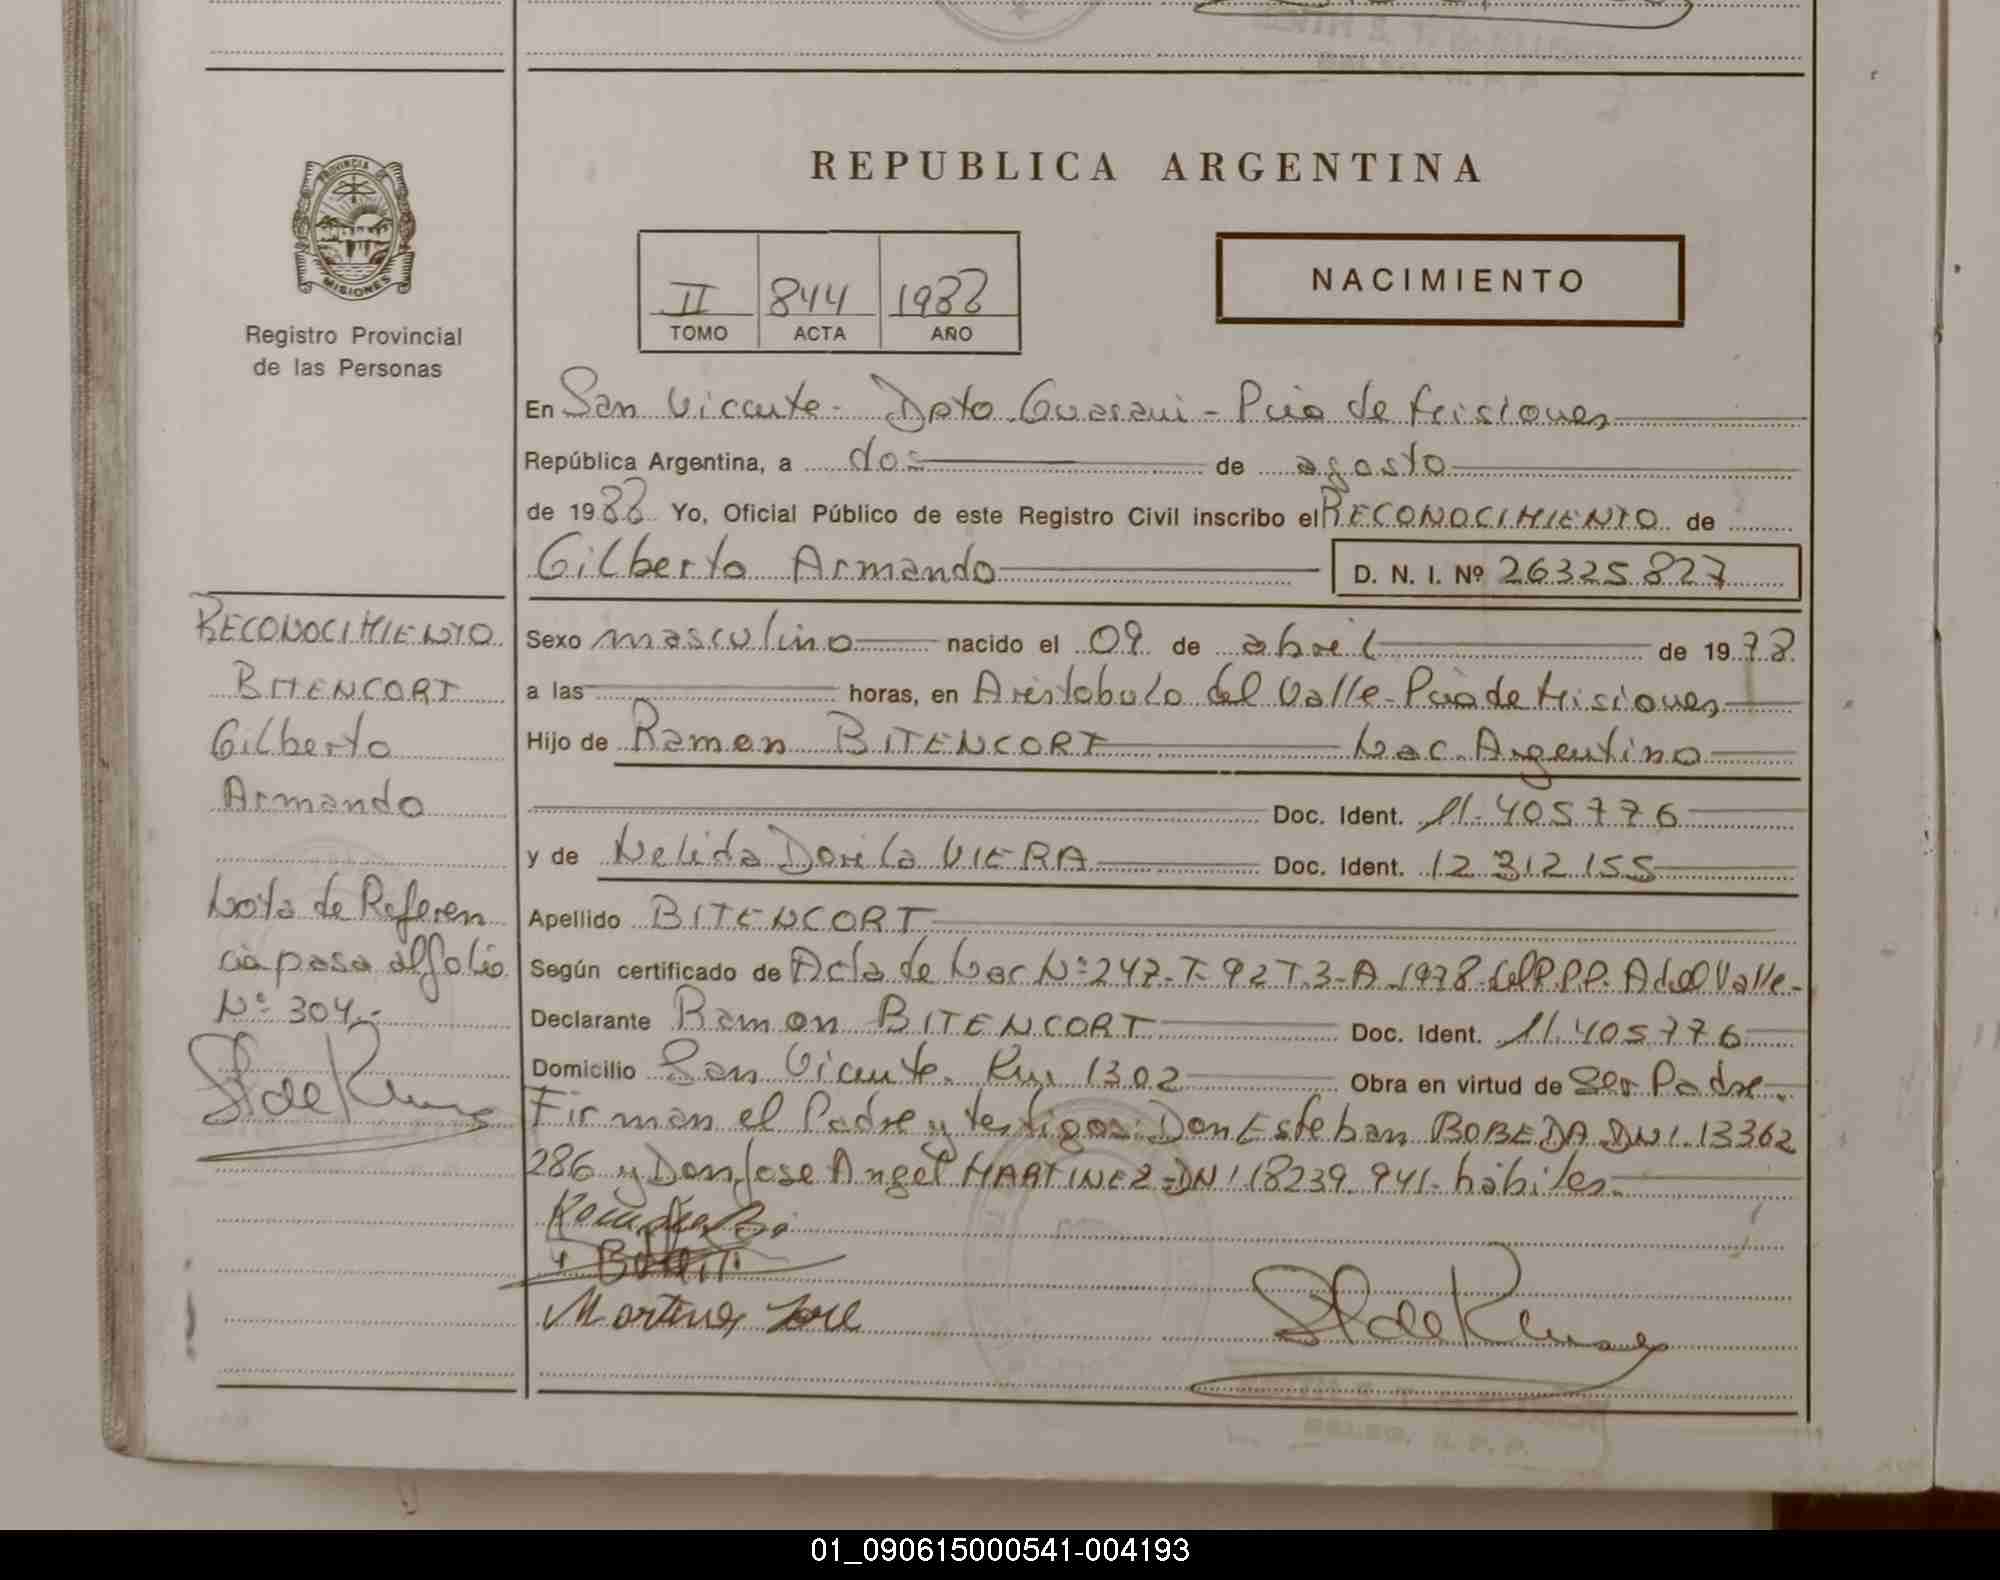 REPUBLICA ARGENTINA
PROVINCIA DE
MISIONES
Registro Provincial
de las Personas
II 844 1988
TOMO ACTA AÑO
NACIMIENTO
En San Vicente - Dpto Guarani - Pcia de Misiones
República Argentina, a dos de agosto
de 1988 Yo, Oficial Público de este Registro Civil inscribo el RECONOCIMIENTO de
Gilberto Armando D. N. I. Nº 26325827
RECONOCIMIENTO
BITENCORT
Gilberto
Armando
Nota de Referen
cia pasa al folio
Nº 304.-
Sexo masculino nacido el 09 de abril de 1978
a las horas, en Aristobulo del Valle - Pcia de Misiones
Hijo de Ramon BITENCORT Nac. Argentino
Doc. Ident. 11.405776
y de Nelida Dorila VIERA Doc. Ident. 12 312 155
Apellido BITENCORT
Según certificado de Acta de Nac Nº 247-T-92 T.3-A-1978 del R.P.P. A del Valle-
Declarante Ramon BITENCORT Doc. Ident. 11.405776
Domicilio San Vicente. Km 1302 Obra en virtud de Ser Padre.
Firman el Padre y testigos: Don Esteban BOBEDA DNI 13362
286 y Don Jose Angel MARTINEZ DNI 18239.941- hábiles.
Martinez Jose
01_090615000541-004193